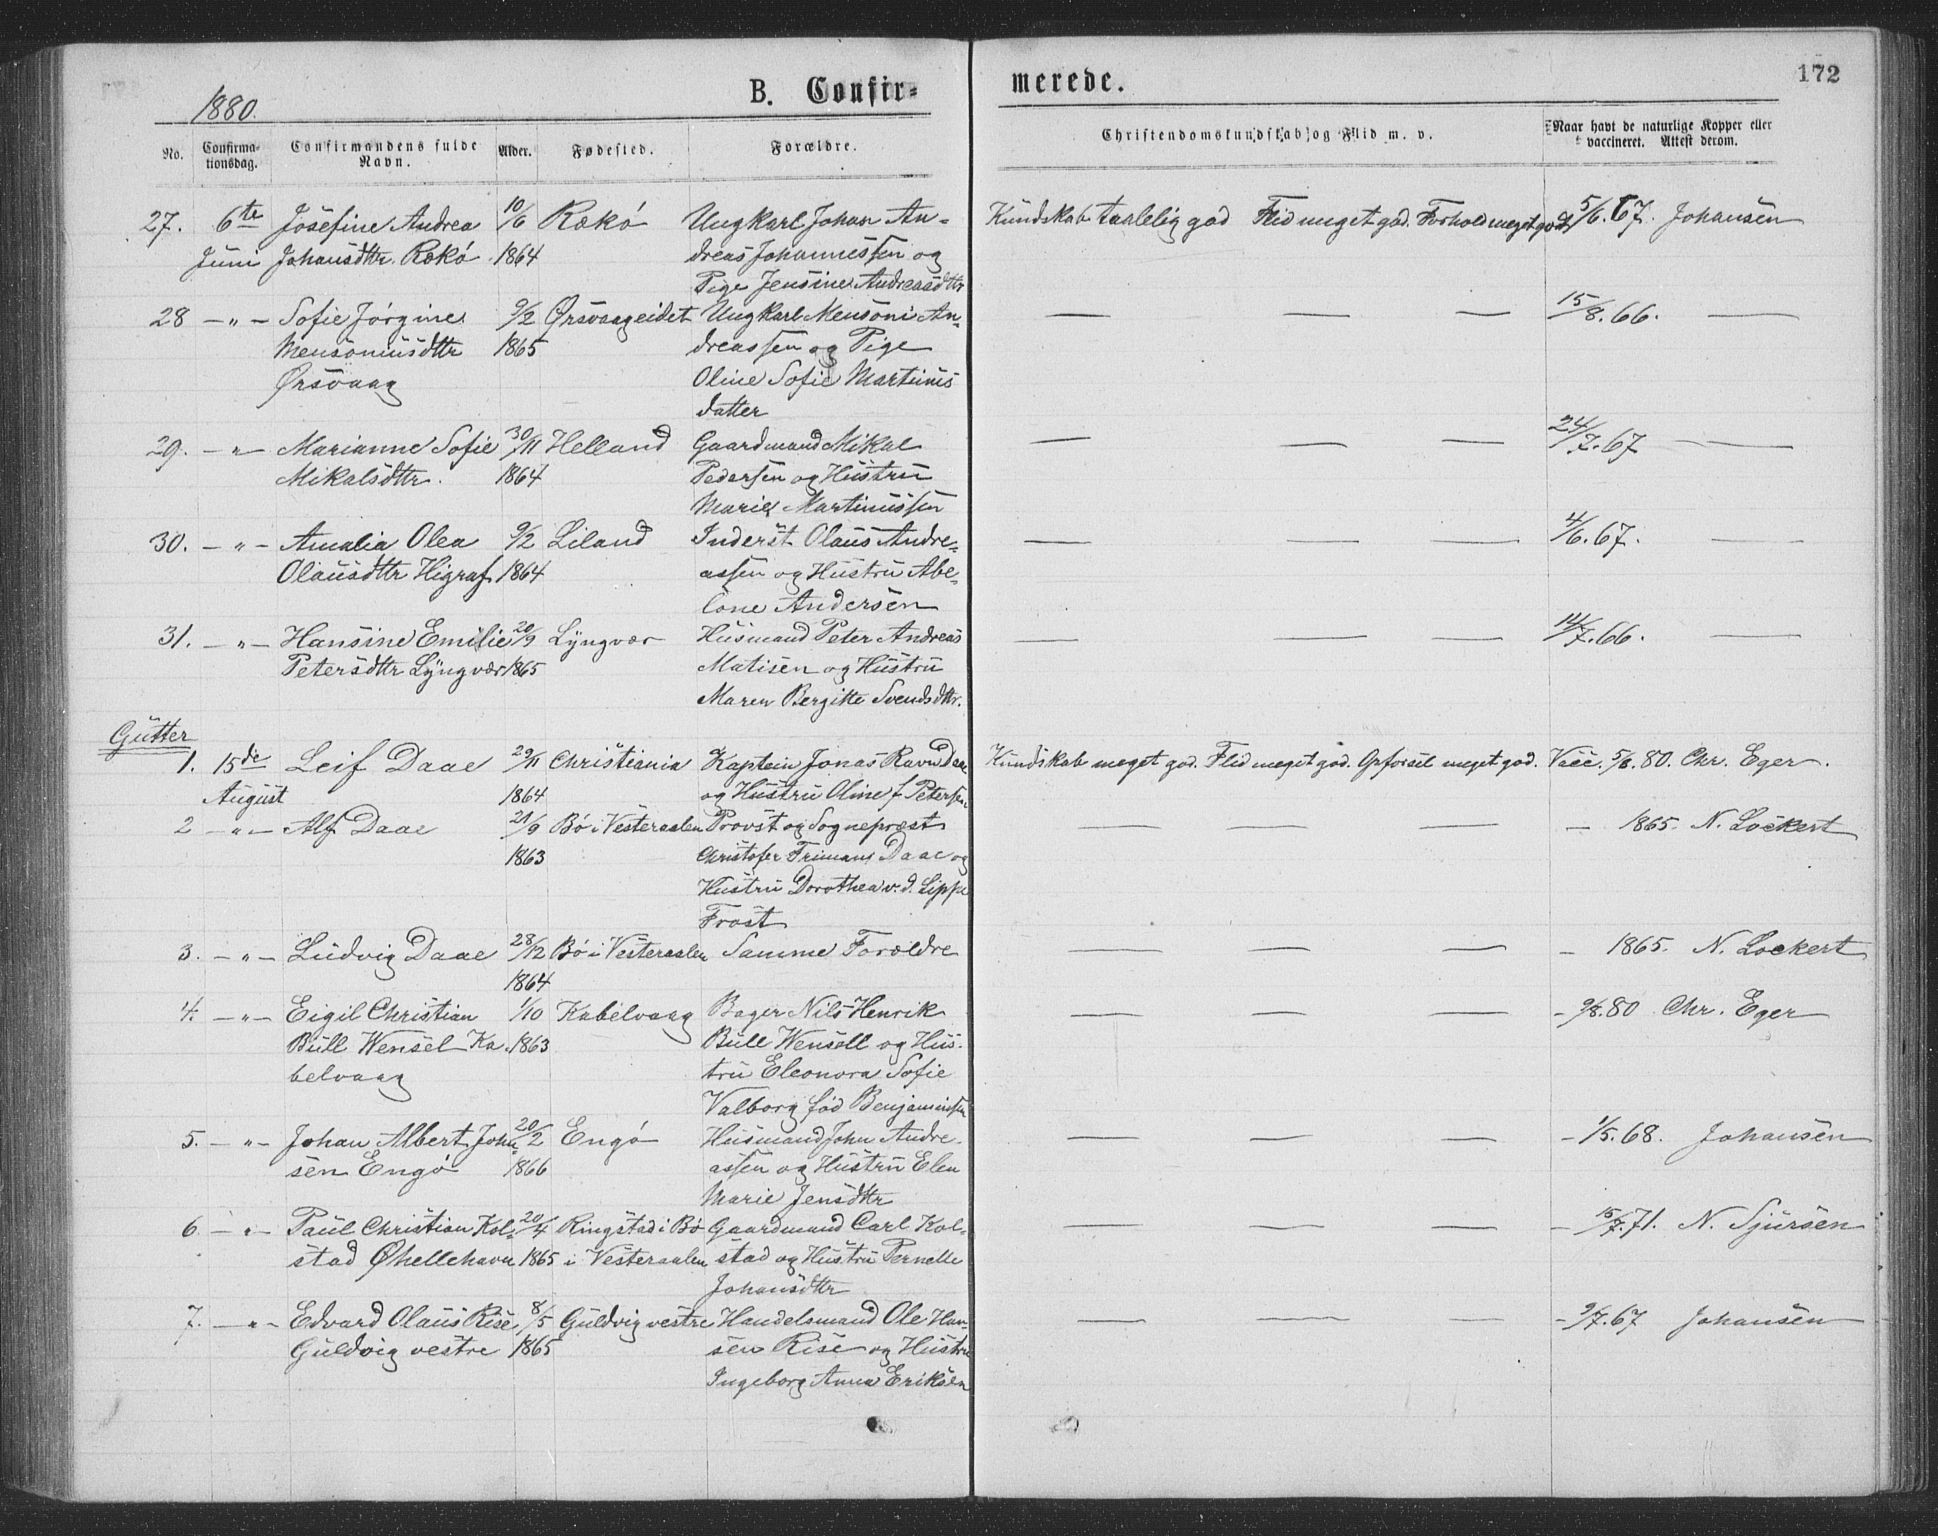 172
1880.
B. Confir-
merede.
No.
Confirma-
tionsdag.
Confirmandens fulde
Navn.
Alder.
Fødested.
Forældre.
Christendomskundskab og Flid m. v.
Naar havt de naturlige Kopper eller
vaccineret. Attest derom.
27. 6te Josefine Andrea 10/6 Rækø Ungkarl Johan An- Kundskab taalelig god Flid meget god. Forhold meget godt 5/6. 67. Johansen
Juni Johansdttr. Rækø 1864 dreas Johannessen og
Pige Jensine Andreasdttr
28 — " — Sofie Jørgine 9/2 Ørsvaageidet Ungkarl Mensoni An- — — — 15/8. 66. —
Mensoniusdttr 1865 dreassen og Pige
Ørsvaag Oline Sofie Martinus
datter
29. — " — Marianne Sofie 30/11 Helland Gaardmand Mikal — — — 24/7. 67 —
Mikalsdttr. 1864 Pedersen og Hustru
Marie Martinussen
30. — " — Amalia Olea 9/2 Liland Inderst Olaus Andre- — — — 4/6. 67. —
Olausdttr Higraf 1864 assen og Hustru Abe-
lone Andersen
31. — " — Hansine Emilie 20/9 Lyngvær Husmand Peter Andreas — — — 14/7. 66. —
Petersdttr Lyngvær 1865 Matisen og Hustru
Maren Bergitte Svendsdttr.
Gutter
1. 15de Leif Daae 29/11 Christiania Kaptein Jonas Ravn Daae Kundskab meget god. Flid meget god. Opførsel meget god. Vacc. 5/8. 80. Chr. Eger.
August 1864 og Hustru Oline f. Petersen
2 — " — Alf Daae 21/9 Bø i Vesteraalen Provst og Sognepræst — — — — 1865. N. Lockert
1863 Christofer Frimann Daae og
Hustru Dorothea v. d. Lippe
Frost
3. — " — Ludvig Daae 28/12 Bø i Vesteraalen Samme Forældre — — — — 1865. N. Lockert
1864
4. — " — Eigil Christian 1/10 Kabelvaag Bager Nils Henrik — — — - 9/8. 80 Chr. Eger
Bull Wensel Ka- 1863 Bull Wensell og Hus-
belvaag tru Eleonora Sofie
Valborg fød Benjaminsen
5. — " — Johan Albert John- 20/2 Engø Husmand John Andre- — — — - 1/5. 68. Johansen
sen Engø 1866 assen og Hustru Elen
Marie Jensdttr
6. — " — Paul Christian Kol- 20/4 Ringstad i Bø Gaardmand Carl Kol- — — — - 15/7. 71. N. Sjursen
stad Øhellehavn 1865 i Vesteraalen stad og Hustru Pernelle
Johansdttr
7. — " — Edvard Olaus Rise 8/5 Guldvig vestre Handelsmand Ole Han- — — — - 9/7. 67 Johansen
Guldvig vestre 1865 sen Rise og Hustru
Ingeborg Anna Eriksen